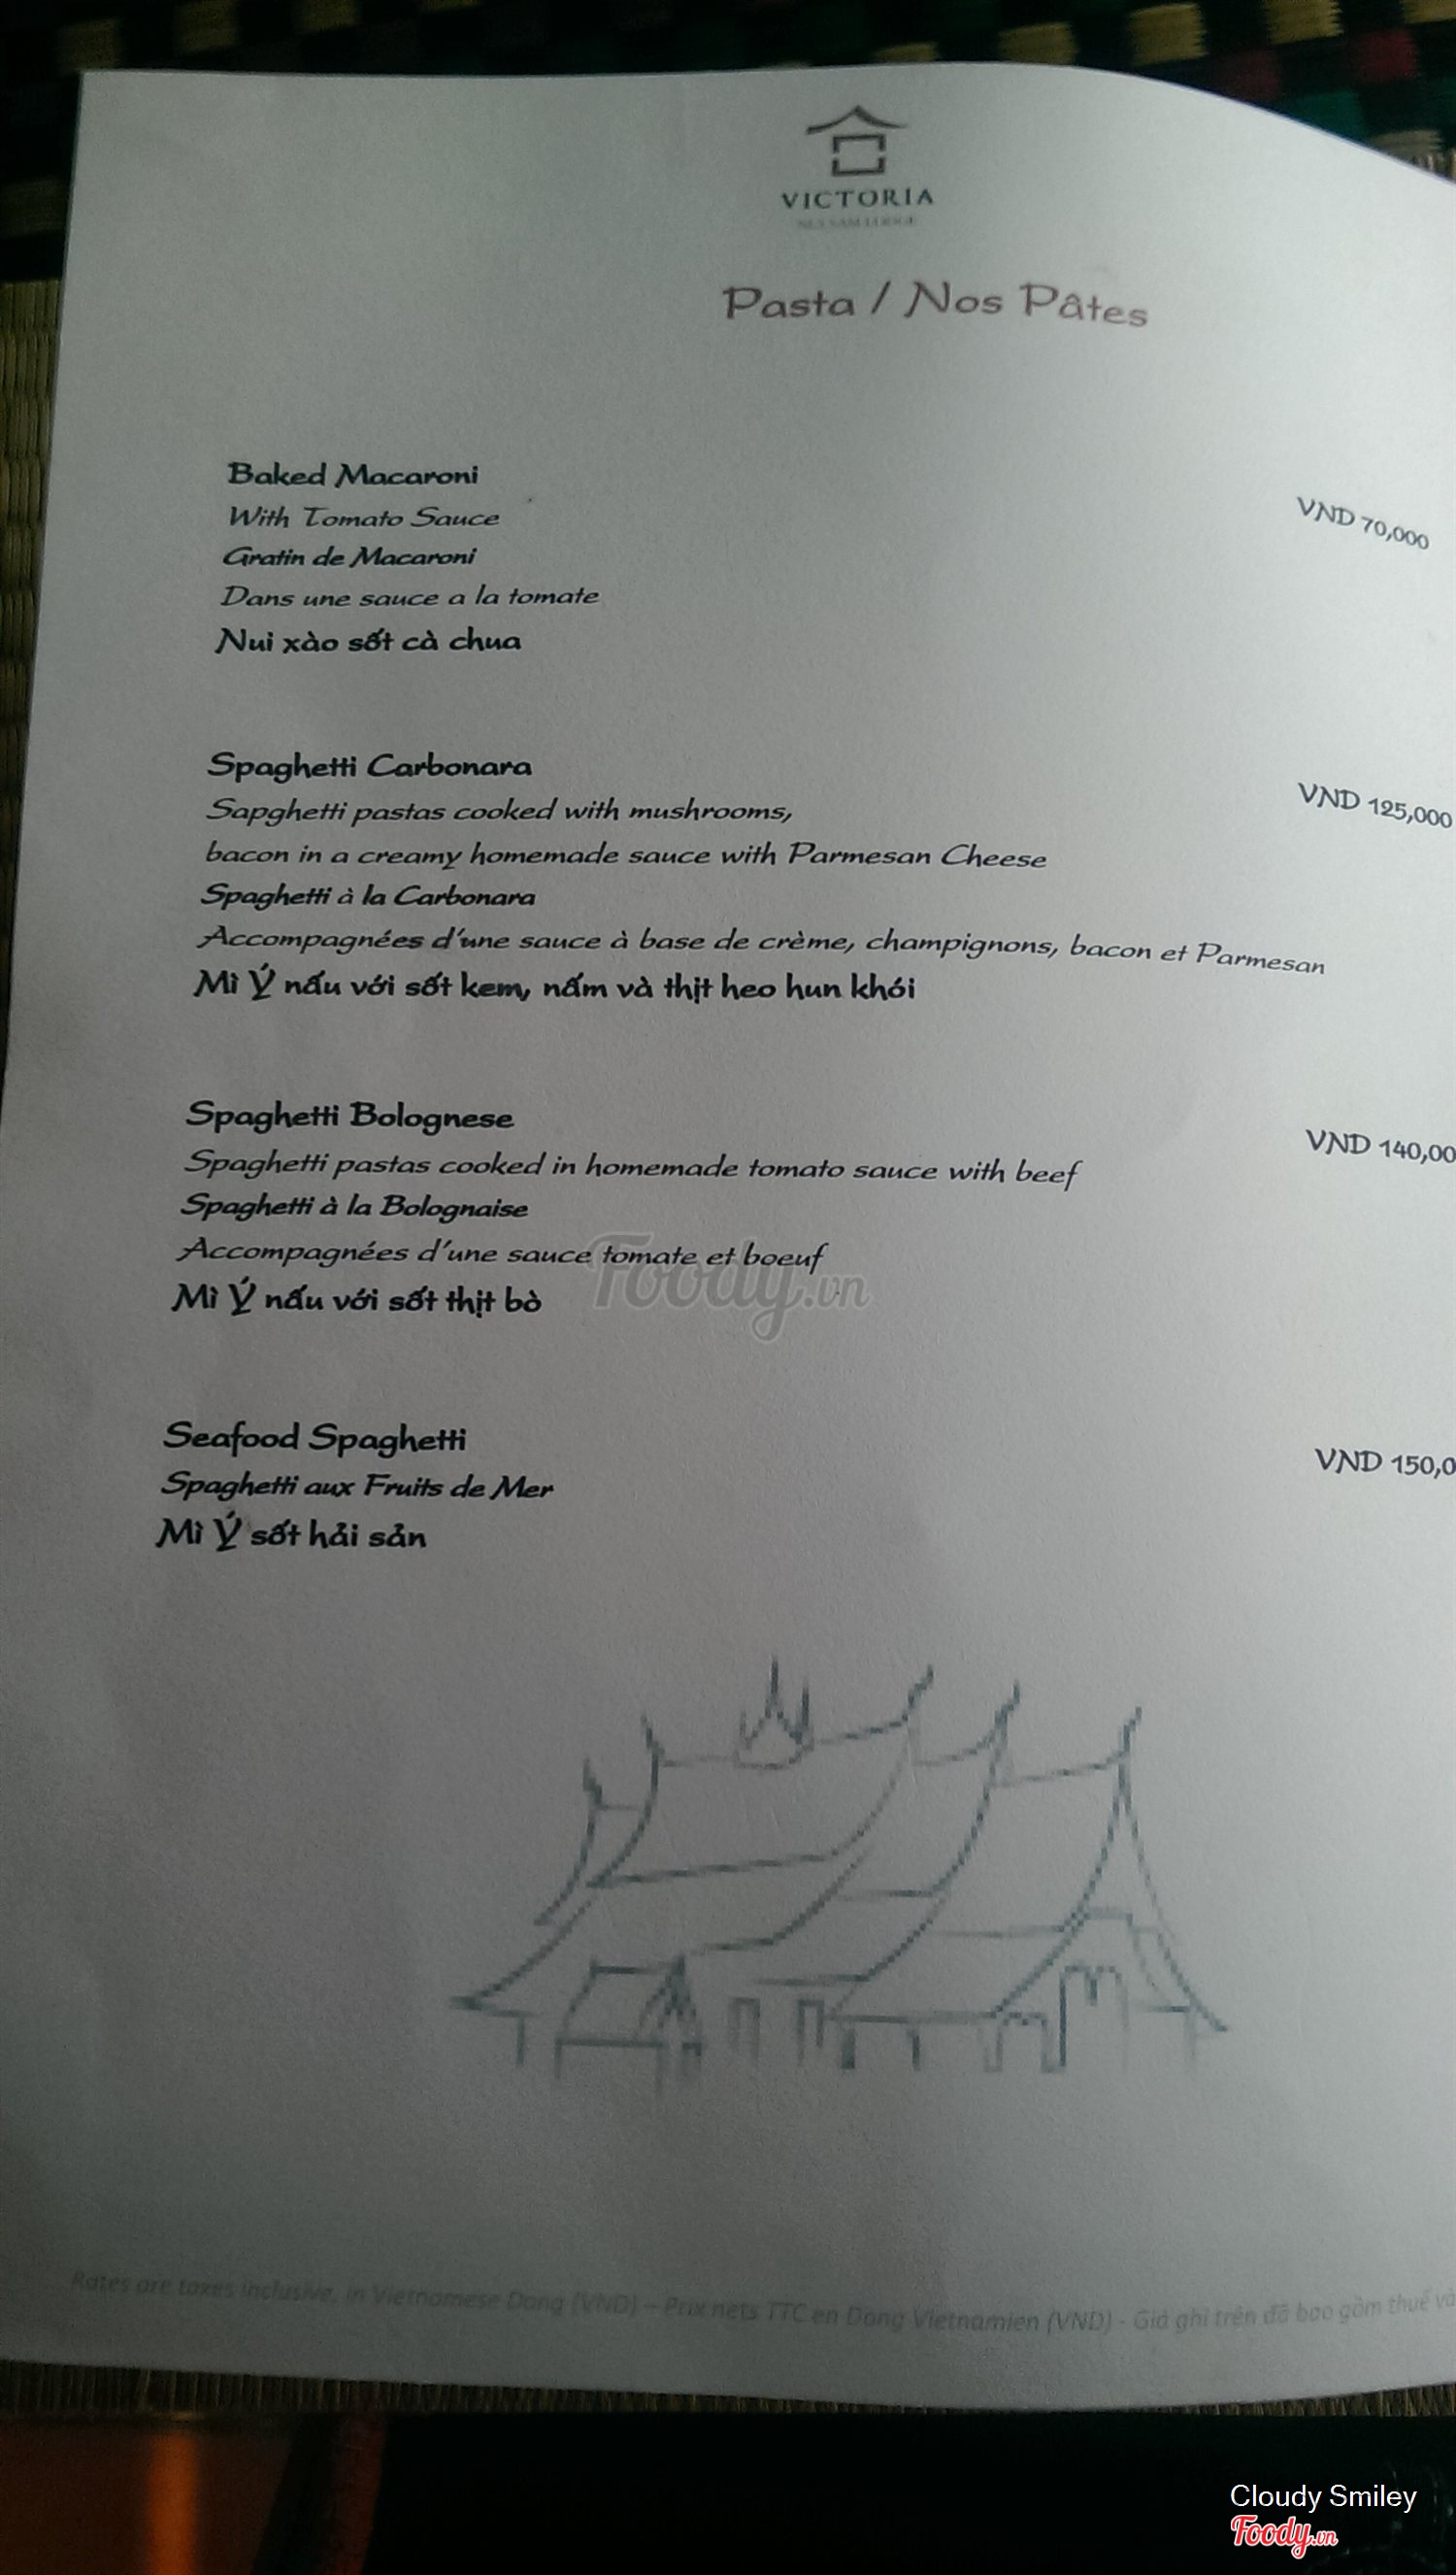 VICTORIA
NUI SAM LODGE
Pasta / Nos Pâtes
Baked Macaroni
With Tomato Sauce
VND 70,000
Gratin de Macaroni
Dans une sauce a la tomate
Nui xào sốt cà chua
Spaghetti Carbonara
Sapghetti pastas cooked with mushrooms,
VND 125,000
bacon in a creamy homemade sauce with Parmesan Cheese
Spaghetti à la Carbonara
Accompagnées d'une sauce à base de crème, champignons, bacon et Parmesan
Mì Ý nấu với sốt kem, nấm và thịt heo hun khói
Spaghetti Bolognese
VND 140,00
Spaghetti pastas cooked in homemade tomato sauce with beef
Spaghetti à la Bolognaise
Accompagnées d'une sauce tomate et boeuf
Mì Ý nấu với sốt thịt bò
Foody.vn
Seafood Spaghetti
VND 150,0
Spaghetti aux Fruits de Mer
Mì Ý sốt hải sản
Rates are taxes inclusive, in Vietnamese Dong (VND) – Prix nets TTC en Dong Vietnamien (VND) - Giá ghi trên đã bao gồm thuế và
Cloudy Smiley
Foody.vn